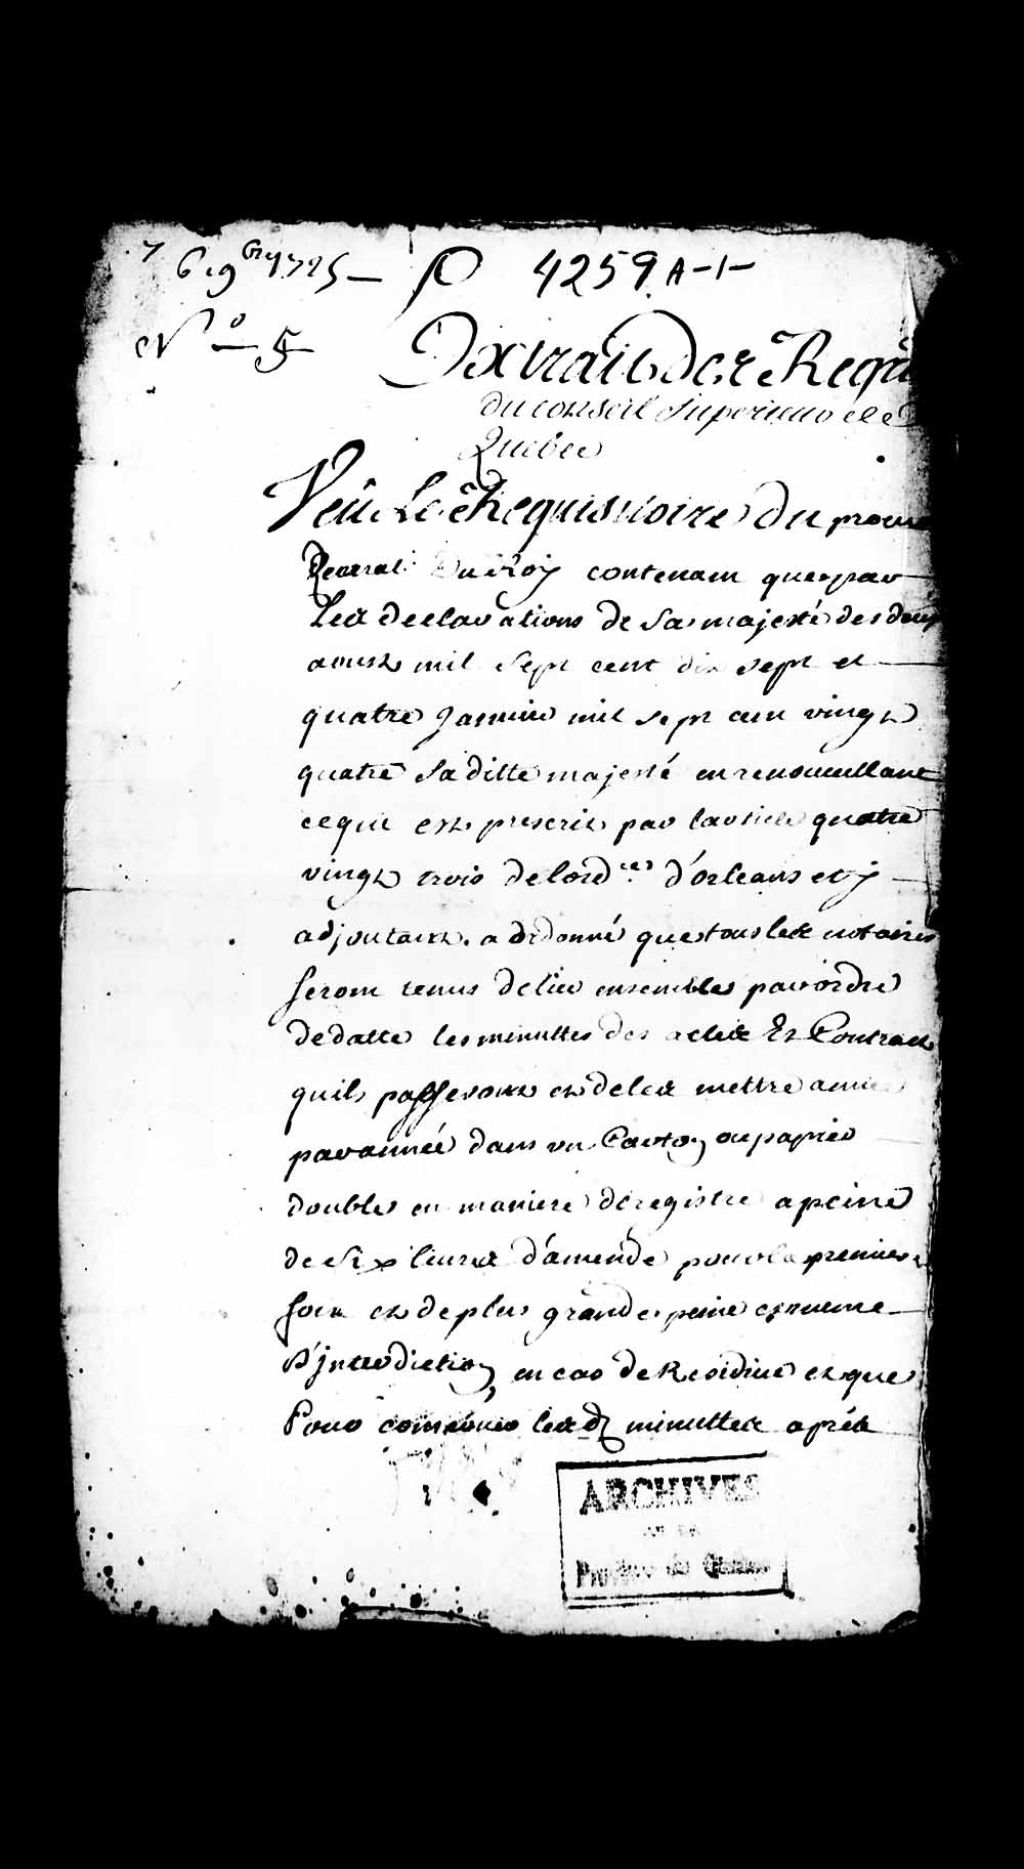 6 9bre 1725 — P 4259 A-1-
N° — 5
Extrait Des Regis
du conseil Superieur de
Quebec
Veu Le Requisitoire Du procu
General Du Roy contenant que par
Les declarations de Sa majesté des deux
aoust mil sept cent dix sept et
quatre Janvier mil sept cent vingt
quatre Sa ditte majesté en renouvellant
ce qui est prescrit par larticle quatre
vingt trois de lord.ce d'orleans et y
adjoutant. a ordonné que tous les notaires
seront tenus de lier ensembles par ordre
de datte les minuttes des actes Et Contract
quils passeront et de les mettre année
par année dans un Carton ou papier
doubles en maniere de registre a peine
de Six livres d'amende pour la premiere
fois et de plus grande peine et mesme
d'jnterdiction, en cas de Recidive et que
Pour conserver les d. minuttes aprés
ARCHIVES
de la
Province de Québec